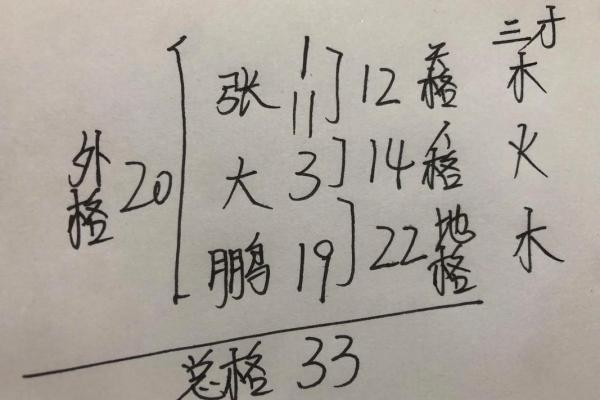 三才
1
张 11 12 天格 木
大 3 14 人格 火
外格 20
鹏 19 22 地格 木
总格 33